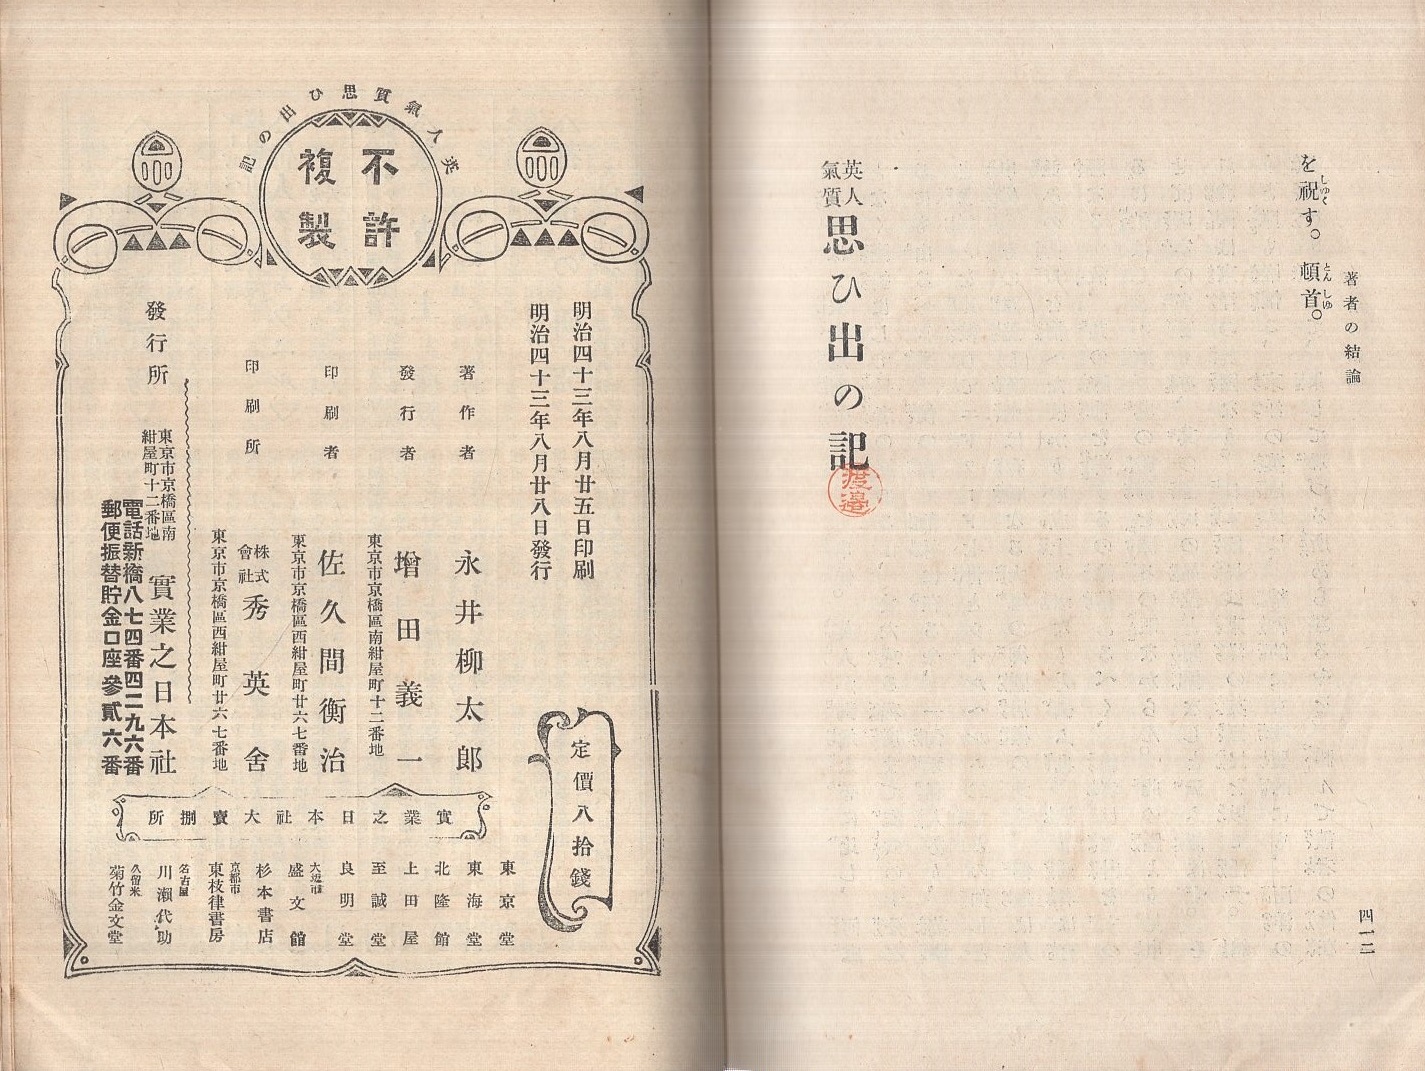 著者の結論
四一二
を祝す。頓首。
しゆく
とんしゆ
英人
氣質
思ひ出の記
渡邉
英人氣質思ひ出の記
不許
複製
明治四十三年八月廿五日印刷
明治四十三年八月廿八日發行
定價八拾錢
著作者
永井柳太郎
發行者
增田義一
東京市京橋區南紺屋町十二番地
印刷者
佐久間衡治
東京市京橋區西紺屋町廿六七番地
印刷所
株式
會社
秀英舍
東京市京橋區西紺屋町廿六七番地
發行所
東京市京橋區南
紺屋町十二番地
實業之日本社
電話新橋八七四番四二九六番
郵便振替貯金口座參貳六番
實業之日本社大賣捌所
東京堂
東海堂
北隆館
上田屋
至誠堂
良明堂
盛文館
杉本書店
京都市
東枝律書房
名古屋
川瀬代助
久留米
菊竹金文堂